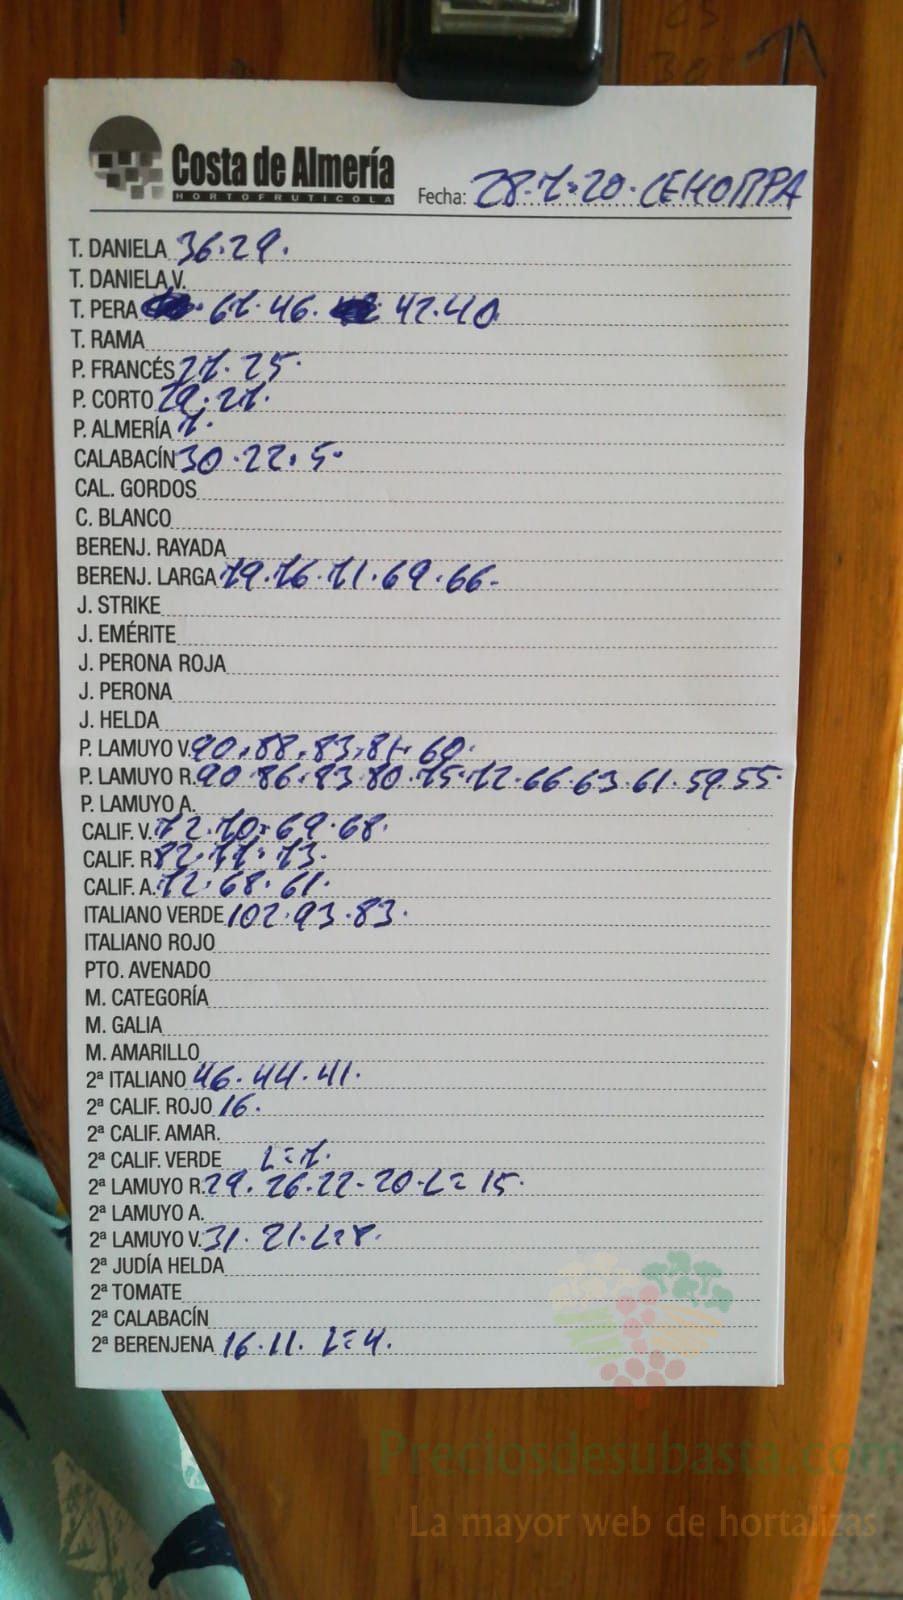 Costa de Almería
HORTOFRUTICOLA
Fecha: 28.7.20. CEHORPA
T. DANIELA 36.29.
T. DANELA V.
T. PERA 67.46. 42.40
T. RAMA
P. FRANCÉS 27.25.
P. CORTO 29.27.
P. ALMERÍA 7.
CALABACÍN 30.22.5.
CAL. GORDOS
C. BLANCO
BERENJ. RAYADA
BERENJ. LARGA 79.76.71.69.66.
J. STRIKE
J. EMÉRITE
J. PERONA ROJA
J. PERONA
J. HELDA
P. LAMUYO V. 90.88.83.81.60.
P. LAMUYO R. 90.86.83.80.75.72.66.63.61.59.55.
P. LAMUYO A.
CALIF. V. 72.70.69.68.
CALIF. R. 82.77.73.
CALIF. A. 72.68.61.
ITALIANO VERDE 102.93.83.
ITALIANO ROJO
PTO. AVENADO
M. CATEGORÍA
M. GALIA
M. AMARILLO
2ª ITALIANO 46.44.41.
2ª CALIF. ROJO 16.
2ª CALIF. AMAR.
2ª CALIF. VERDE L=7.
2ª LAMUYO R. 29.26.22-20-L=15.
2ª LAMUYO A.
2ª LAMUYO V. 31.21.L=8.
2ª JUDÍA HELDA
2ª TOMATE
2ª CALABACÍN
2ª BERENJENA 16.11. L=4.
Preciosdesubasta.com
La mayor web de hortalizas